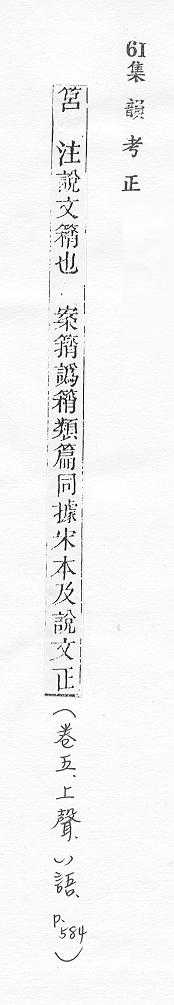 61集韻考正
筥 注說文䈰也 案䈰譌類篇同據宋本及說文正(卷五、上聲、八語、p.584)